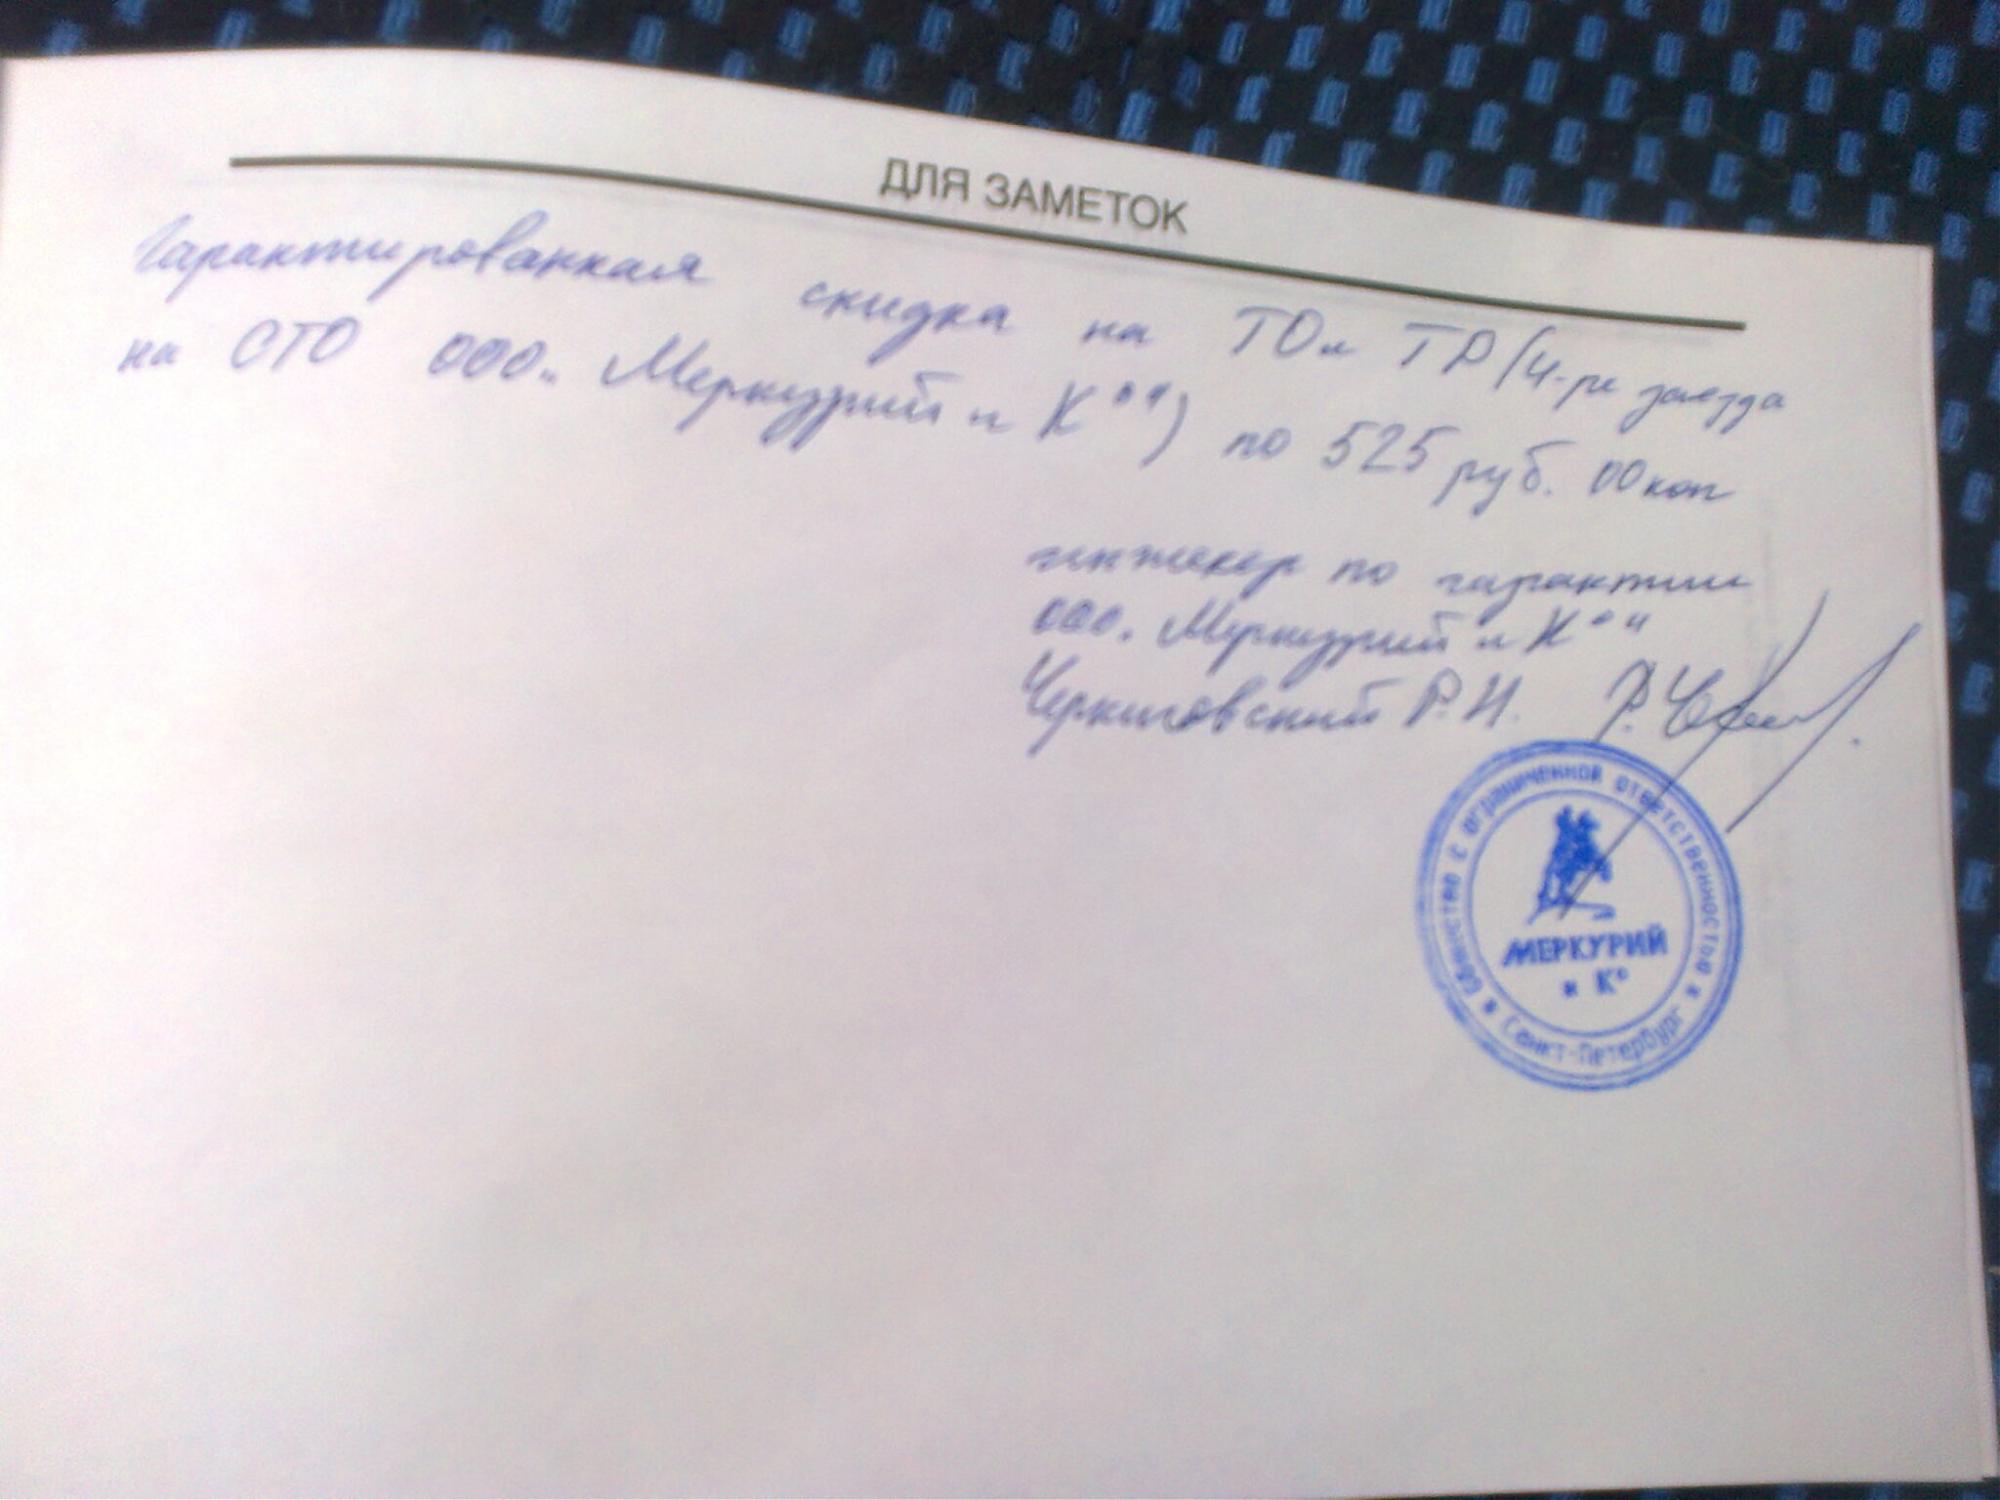 ДЛЯ ЗАМЕТОК
Гарантированная скидка на ТО и ТР (4-ре заезда
на СТО ООО „Меркурий и К°") по 525 руб. 00 коп
инженер по гарантии
ООО „Меркурий и К°"
Черниговский Р.И. Р. Че
общество с ограниченной ответственностью
МЕРКУРИЙ
и К°
Санкт-Петербург